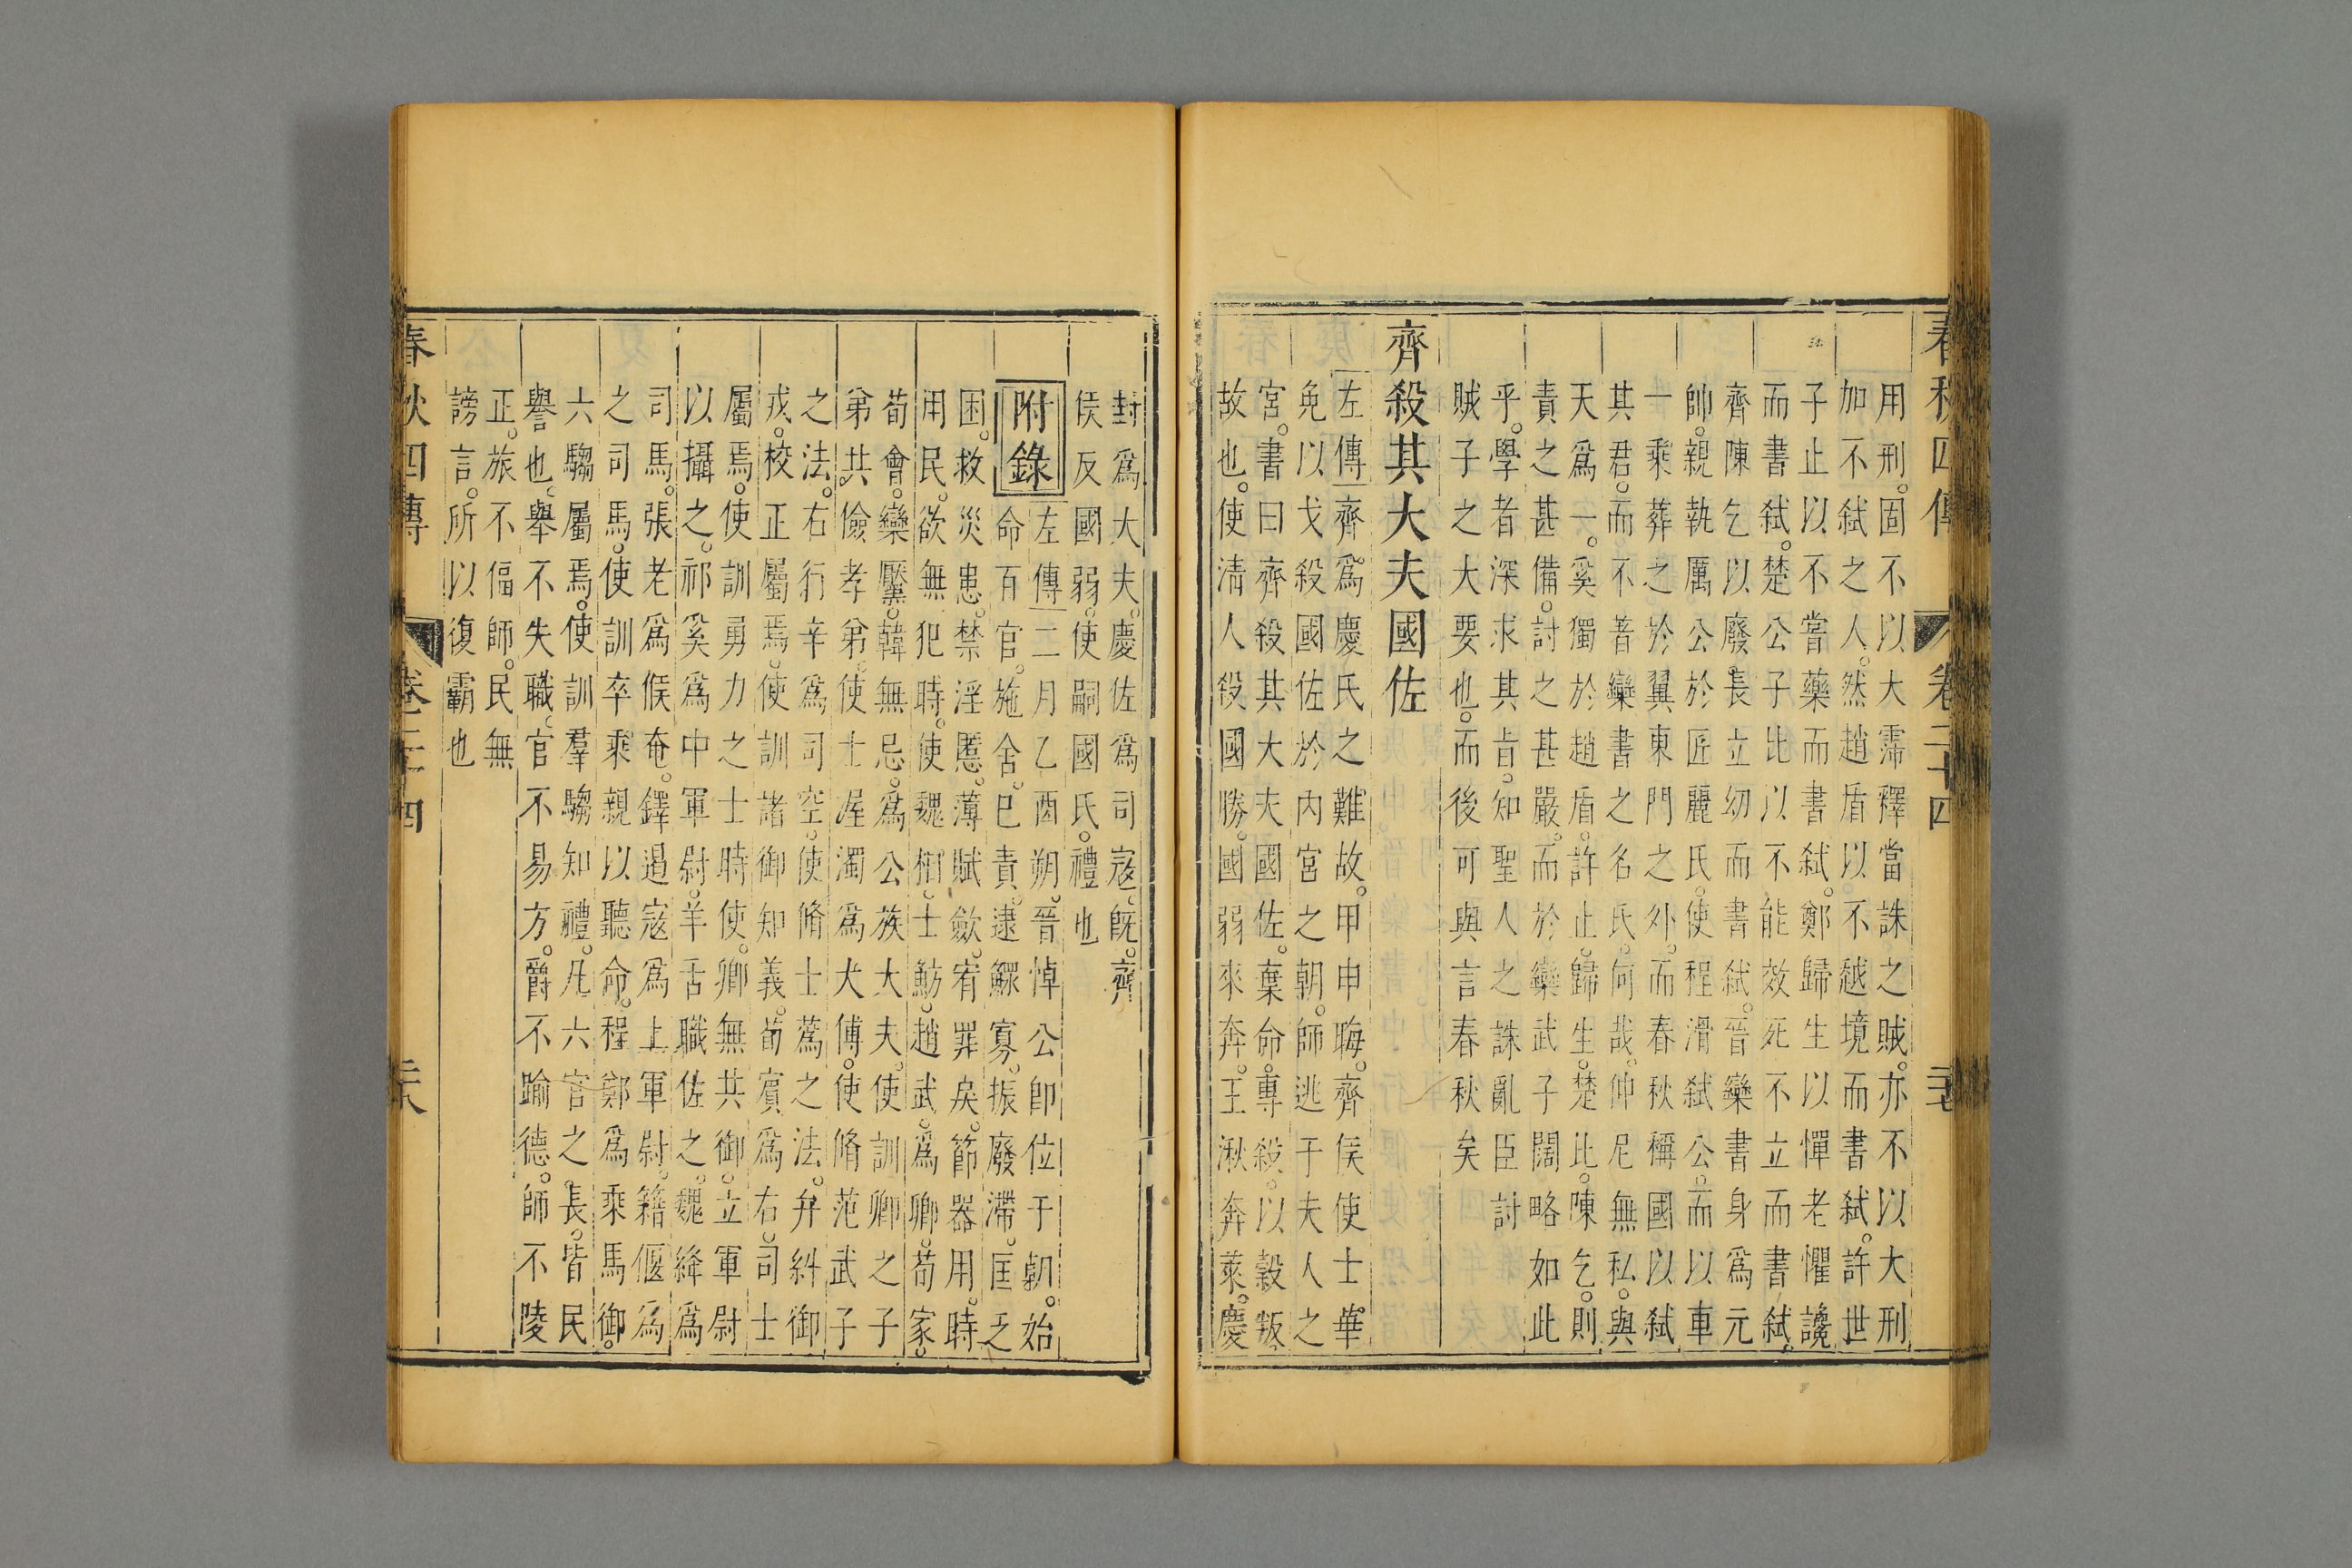 春秋四傳 卷二十四 二十七
用刑。固不以大霈釋當誅之賊。亦不以大刑
加不弑之人。然趙盾以不越境而書弑。許世
子止以不嘗藥而書弑。鄭歸生以憚老懼讒
而書弑。楚公子比以不能效死不立而書弑。
齊陳乞以廢長立幼而書弑。晉欒書身爲元
帥。親執厲公於匠麗氏。使程滑弑公。而以車
一乘葬之於翼東門之外。而春秋稱國以弑
其君。而不著欒書之名氏。何哉。仲尼無私。與
天爲一。奚獨於趙盾。許止。歸生。楚比。陳乞。則
責之甚備。討之甚嚴。而於欒武子闊略如此
乎。學者深求其旨。知聖人之誅亂臣討
賊子之大要也。而後可與言春秋矣
齊殺其大夫國佐
左傳 齊。爲慶氏之難故。甲申晦。齊侯使士華
免以戈殺國佐於內宮之朝。師逃于夫人之
宮。書曰齊殺其大夫國佐。棄命。專殺。以穀叛。
故也。使清人殺國勝。國弱來奔。王湫奔萊。慶
封爲大夫。慶佐爲司寇。旣。齊
侯反國弱。使嗣國氏。禮也
附錄 左傳 二月乙酉朔。晉悼公卽位于朝。始
命百官。施舍。已責。逮鰥寡。振廢滯。匡乏
困。救災患。禁淫慝。薄賦斂。宥罪戾。節器用。時
用民。欲無犯時。使魏相。士魴。趙武。爲卿。荀家。
荀會。欒黶。韓無忌。爲公族大夫。使訓卿之子
弟共儉孝弟。使士渥濁爲大傅。使脩范武子
之法。右行辛爲司空。使脩士蔿之法。弁糾御
戎。校正屬焉。使訓諸御知義。荀賓爲右。司士
屬焉。使訓勇力之士時使。卿無共御。立軍尉
以攝之。祁奚爲中軍尉。羊舌職佐之。魏絳爲
司馬。張老爲候奄。鐸遏寇爲上軍尉。籍偃爲
之司馬。使訓卒乘親以聽命。程鄭爲乘馬御。
六騶屬焉。使訓羣騶知禮。凡六官之長。皆民
譽也。舉不失職。官不易方。爵不踰德。師不陵
正。旅不偪師。民無
謗言。所以復霸也
春秋四傳 卷二十四 二十八